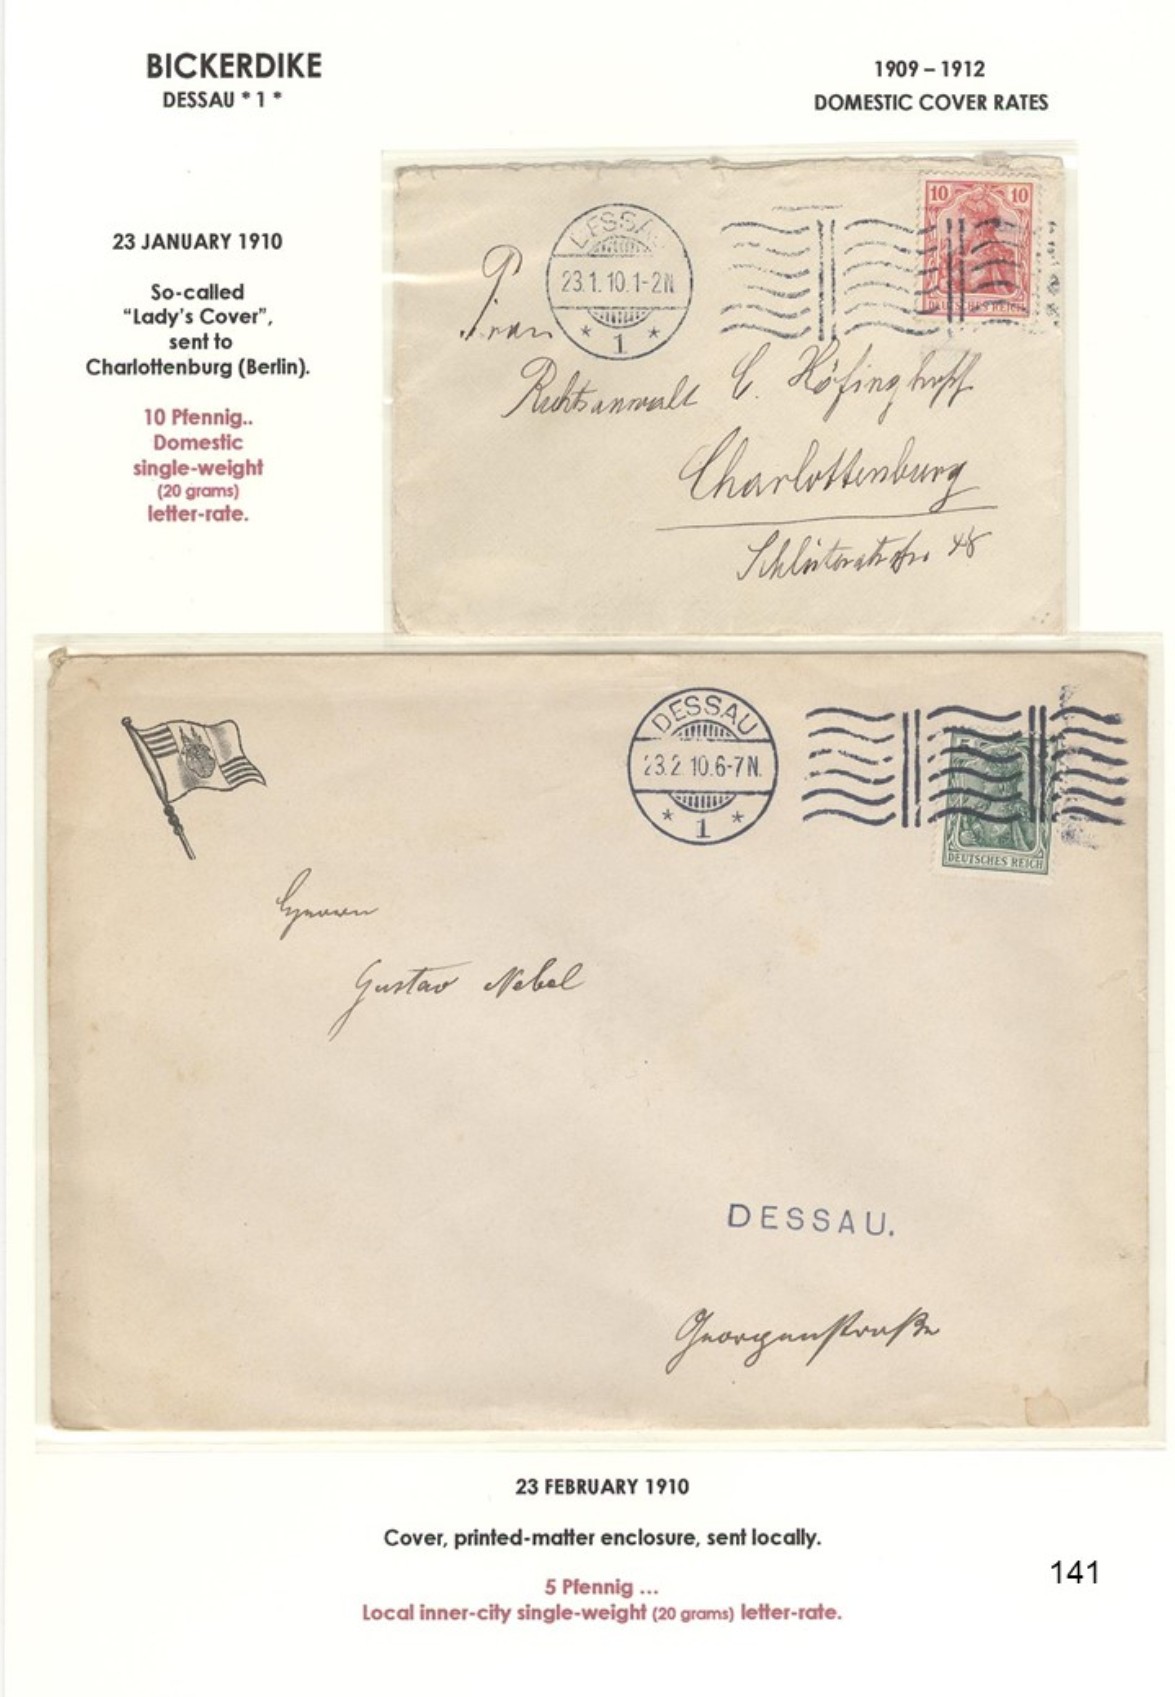 BICKERDIKE
DESSAU * 1 *
1909 – 1912
DOMESTIC COVER RATES
23 JANUARY 1910
So-called
“Lady’s Cover”,
sent to
Charlottenburg (Berlin).
10 Pfennig..
Domestic
single-weight
(20 grams)
letter-rate.
DESSAU
23.1.10.1-2N
* 1 *
10 10
DEUTSCHES REICH
Frau
Rechtsanwalt C. Höfinghoff
Charlottenburg
Schlüterstr. 48
DESSAU
23.2.10.6-7N.
* 1 *
DEUTSCHES REICH
Herrn
Gustav Nebel
DESSAU.
Georgenstraße
23 FEBRUARY 1910
Cover, printed-matter enclosure, sent locally.
5 Pfennig ...
Local inner-city single-weight (20 grams) letter-rate.
141